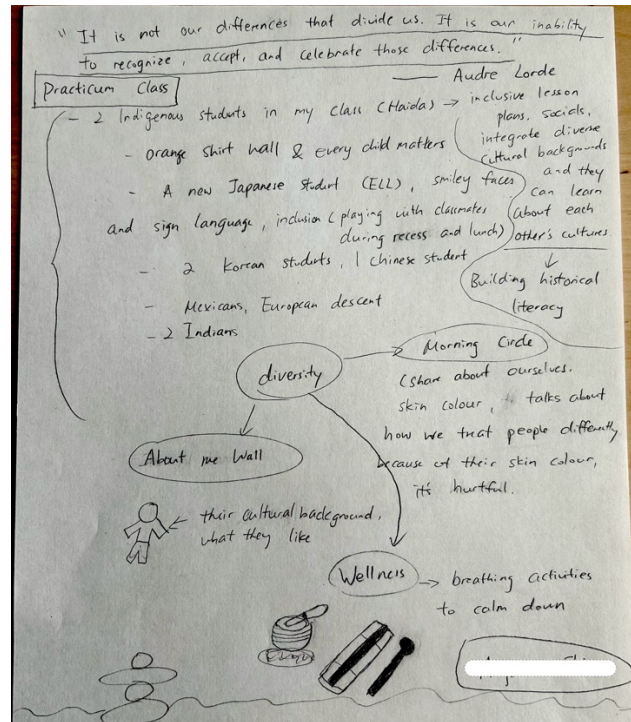 " It is not our differences that divide us. It is our inability
to recognize, accept, and celebrate those differences. "
— Audre Lorde
Practicum Class
- 2 Indigenous students in my class (Haida) → inclusive lesson
plans, socials,
integrate diverse
cultural backgrounds
and they
can learn
about each
other's cultures
↓
Building historical
literacy
- orange shirt wall & every child matters
- A new Japanese student (ELL), smiley faces
and sign language, inclusion (playing with classmates
during recess and lunch)
- 2 Korean students, 1 Chinese student
- Mexicans, European descent
- 2 Indians
diversity
Morning Circle
(share about ourselves.
skin colour, talks about
how we treat people differently
because of their skin colour,
it's hurtful.
About me Wall
← their cultural background,
what they like
Wellness → breathing activities
to calm down